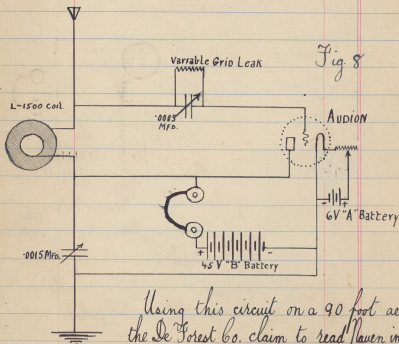 Fig. 8
Variable Grid Leak
L-1500 Coil
.0005
MFD.
AUDION
6V "A" Battery
.0015 MFD.
+ 45 V "B" Battery -
Using this circuit on a 90 foot ae
the De Forest Co. claim to read Nauen in